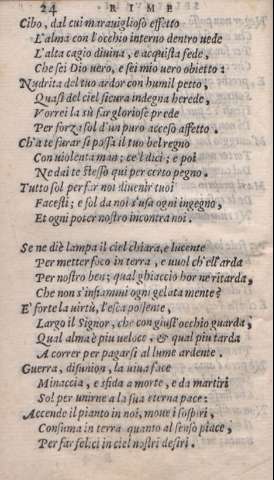 24 RIME
Cibo, dal cui marauiglioso effetto
L'alma con l'occhio interno dentro uede
L'alta cagio diuina, e acquista fede,
Che sei Dio uero, e sei mio uero obietto:
Nudrita del tuo ardor con humil petto,
Quasi del ciel sicura indegna herede,
Vorrei la sù far gloriose prede
Per forza sol d'un puro acceso affetto.
Ch'a te furar si possa il tuo bel regno
Con uiolenta man; ce'l dici; e poi
Ne dai te stesso qui per certo pegno.
Tutto sol per far noi diuenir tuoi
Facesti; e sol da noi s'usa ogni ingegno,
Et ogni poter nostro incontra noi.
Se ne diè lampa il ciel chiara, e lucente
Per metter foco in terra, e uuol ch'ell'arda
Per nostro ben; qual ghiaccio hor ne ritarda,
Che non s'infiammi ogni gelata mente?
E' forte la uirtù, l'esca possente,
Largo il Signor, che con giust'occhio guarda,
Qual alma è piu ueloce, & qual piu tarda
A correr per pagarsi al lume ardente.
Guerra, disunion, la uiua face
Minaccia, e sfida a morte, e da martiri
Sol per unirne a la sua eterna pace:
Accende il pianto in noi, moue i sospiri,
Consuma in terra quanto al senso piace,
Per far felici in ciel nostri desiri.